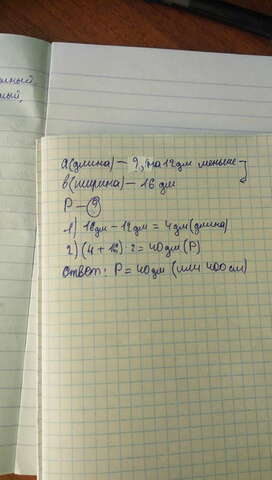 а(длина) – ?, на 12 дм меньше
в(ширина) – 16 дм
P – ?
1) 16дм – 12дм = 4дм(длина)
2) (4 + 16) 2 = 40дм(P)
Ответ: P = 40дм (или 400см)